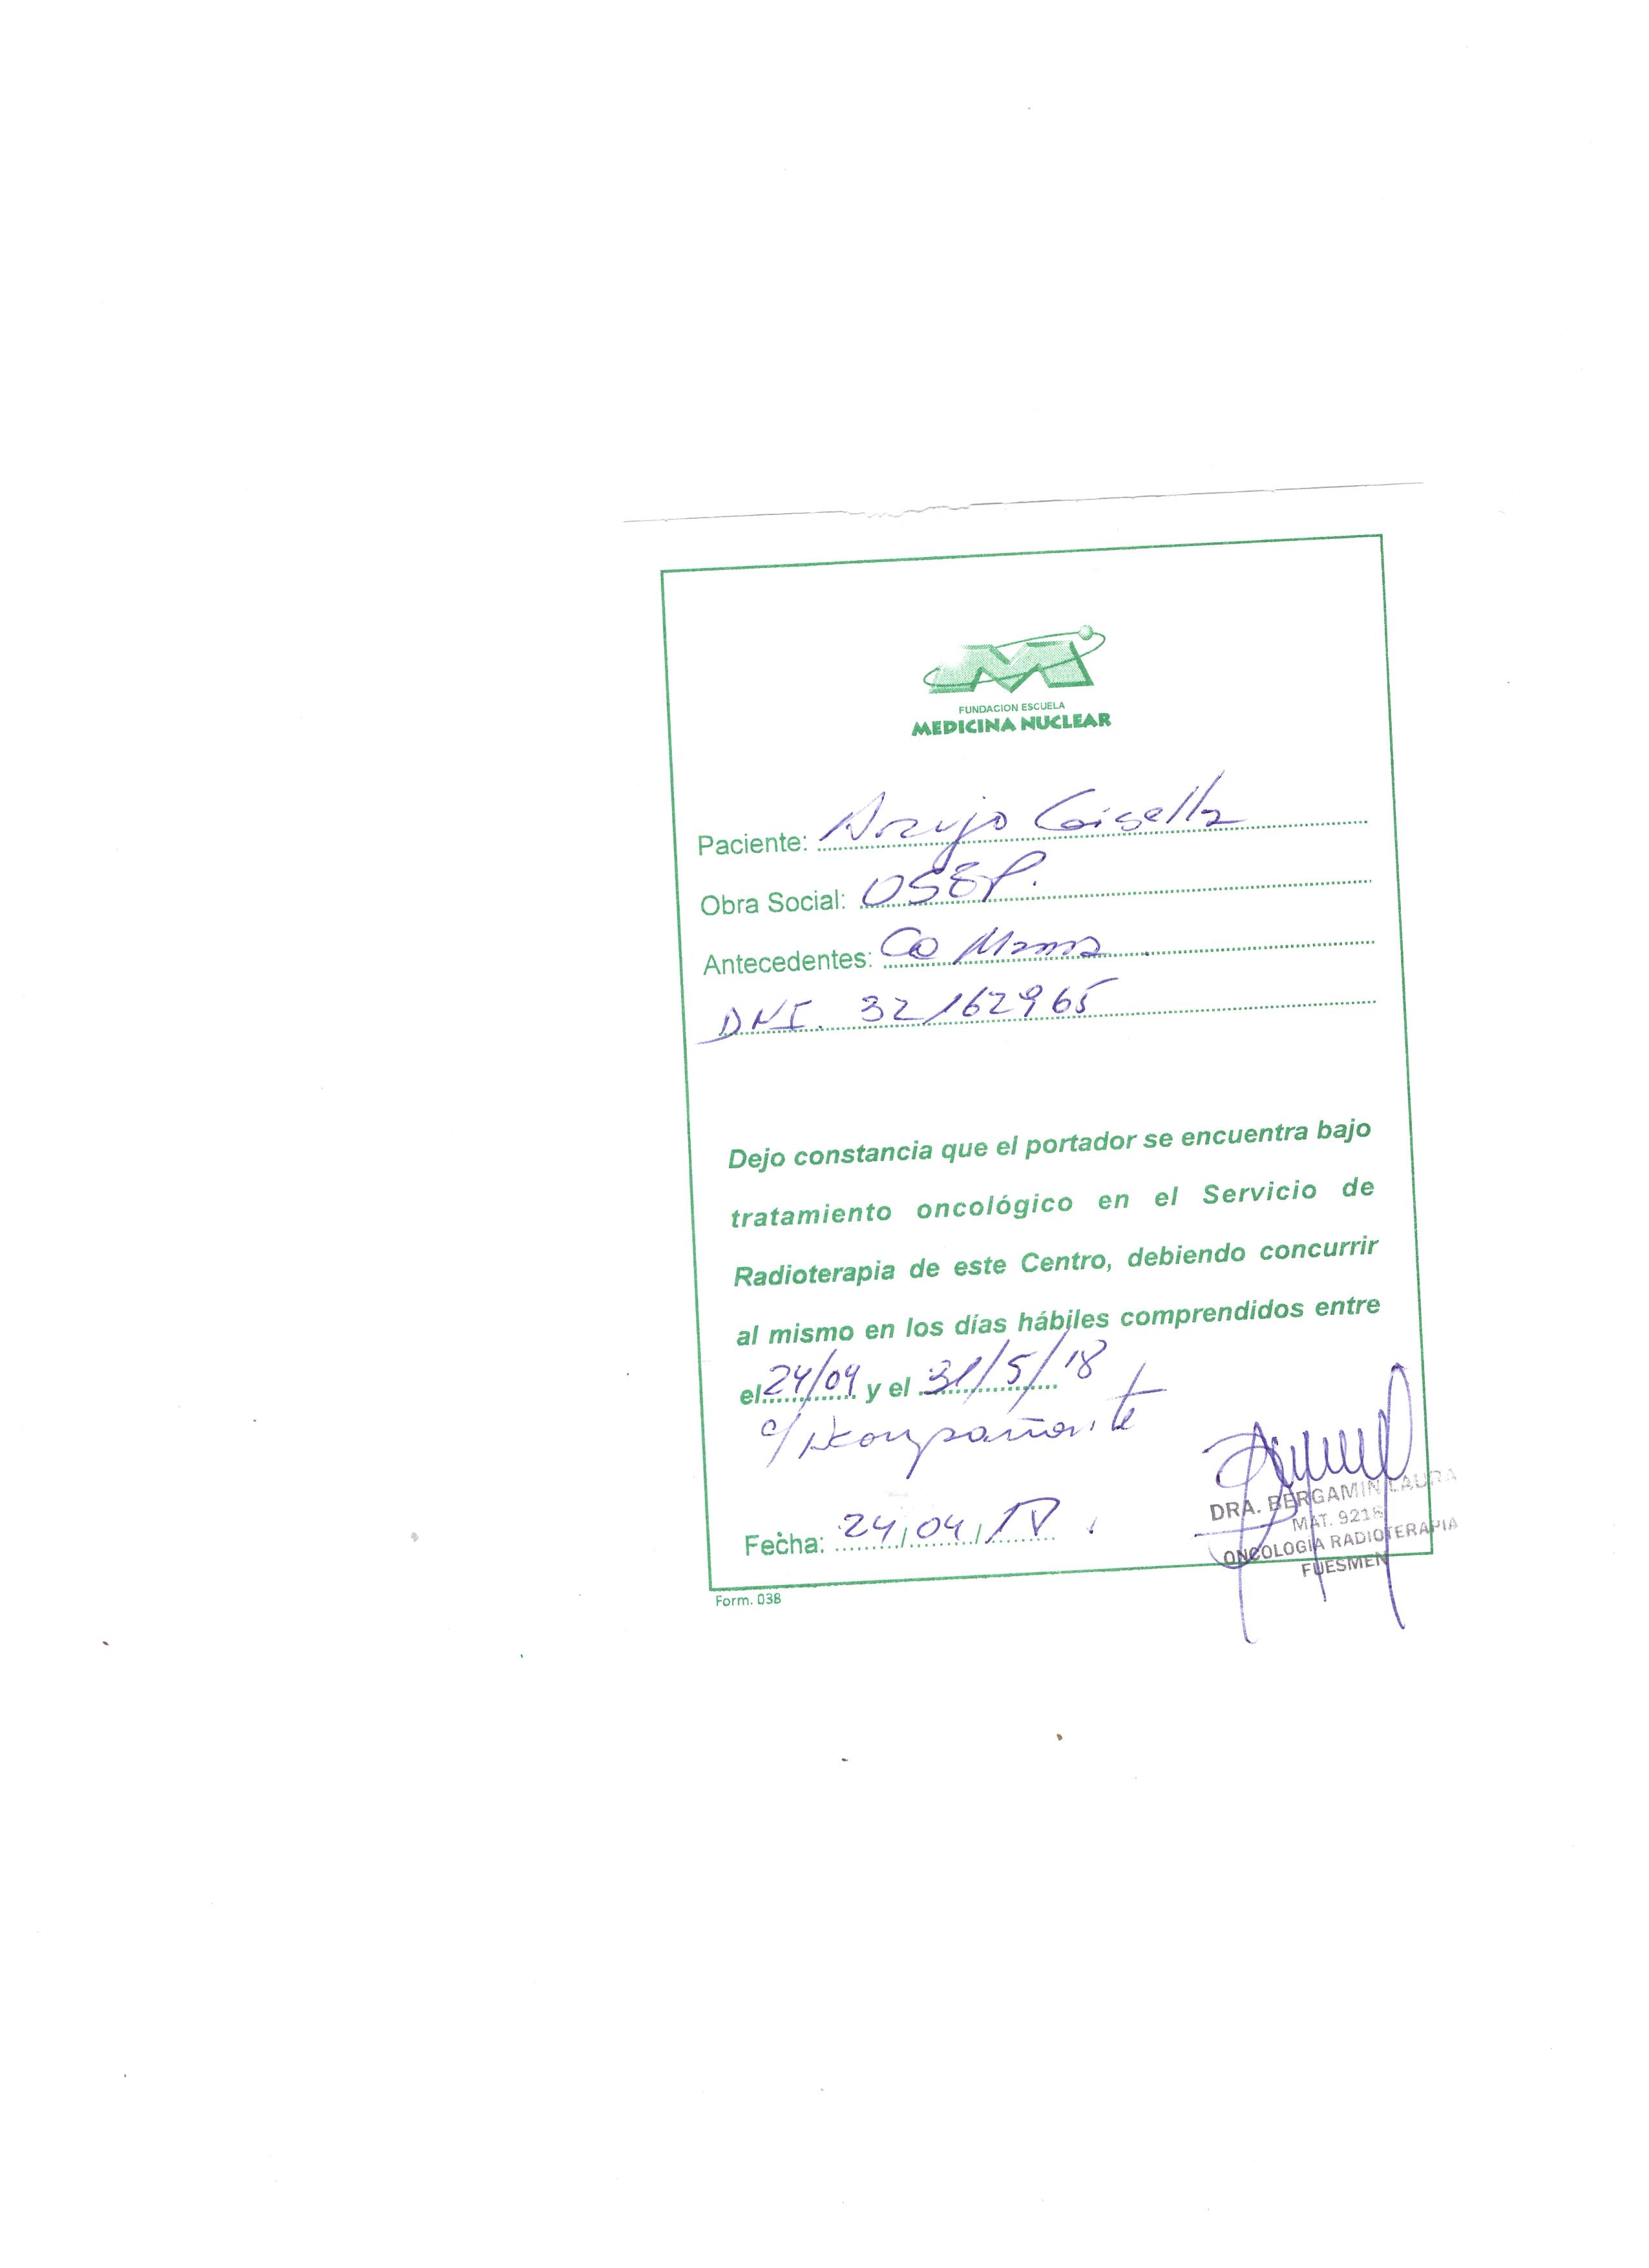 FUNDACION ESCUELA
MEDICINA NUCLEAR
Paciente: Araujo Gisella
Obra Social: OSEP.
Antecedentes: Ca Mama.
DNI. 32162965
Dejo constancia que el portador se encuentra bajo
tratamiento oncológico en el Servicio de
Radioterapia de este Centro, debiendo concurrir
al mismo en los días hábiles comprendidos entre
el 24/04 y el 31/5/18
c/Acompañante
Fecha: 24/04/18.
DRA. BERGAMIN LAURA
MAT. 9218
ONCOLOGIA RADIOTERAPIA
FUESMEN
Form. 038